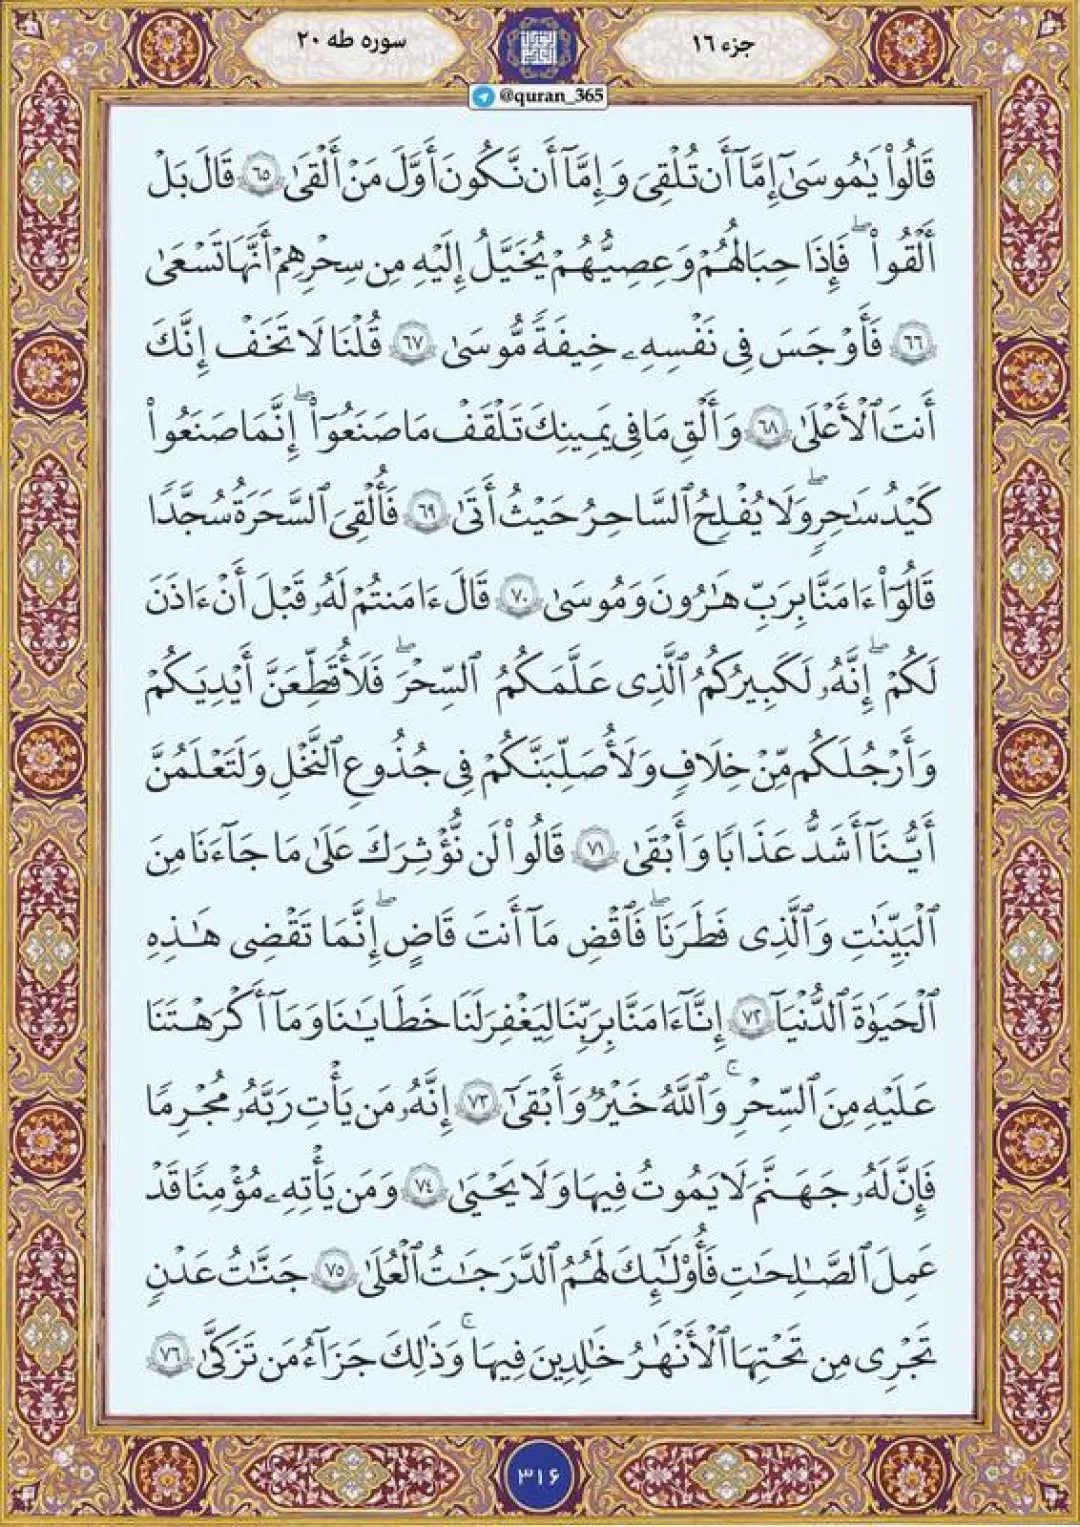 جزء ۱۶
سوره طه ۲۰
@quran_365
قَالُوا۟ يَٰمُوسَىٰٓ إِمَّآ أَن تُلْقِىَ وَإِمَّآ أَن نَّكُونَ أَوَّلَ مَنْ أَلْقَىٰ ۶۵ قَالَ بَلْ
أَلْقُوا۟ ۖ فَإِذَا حِبَالُهُمْ وَعِصِيُّهُمْ يُخَيَّلُ إِلَيْهِ مِن سِحْرِهِمْ أَنَّهَا تَسْعَىٰ
۶۶ فَأَوْجَسَ فِى نَفْسِهِۦ خِيفَةً مُّوسَىٰ ۶۷ قُلْنَا لَا تَخَفْ إِنَّكَ
أَنتَ ٱلْأَعْلَىٰ ۶۸ وَأَلْقِ مَا فِى يَمِينِكَ تَلْقَفْ مَا صَنَعُوٓا۟ ۖ إِنَّمَا صَنَعُوا۟
كَيْدُ سَٰحِرٍ ۖ وَلَا يُفْلِحُ ٱلسَّاحِرُ حَيْثُ أَتَىٰ ۶۹ فَأُلْقِىَ ٱلسَّحَرَةُ سُجَّدًا
قَالُوٓا۟ ءَامَنَّا بِرَبِّ هَٰرُونَ وَمُوسَىٰ ۷۰ قَالَ ءَامَنتُمْ لَهُۥ قَبْلَ أَنْ ءَاذَنَ
لَكُمْ ۖ إِنَّهُۥ لَكَبِيرُكُمُ ٱلَّذِى عَلَّمَكُمُ ٱلسِّحْرَ ۖ فَلَأُقَطِّعَنَّ أَيْدِيَكُمْ
وَأَرْجُلَكُم مِّنْ خِلَافٍ وَلَأُصَلِّبَنَّكُمْ فِى جُذُوعِ ٱلنَّخْلِ وَلَتَعْلَمُنَّ
أَيُّنَآ أَشَدُّ عَذَابًا وَأَبْقَىٰ ۷۱ قَالُوا۟ لَن نُّؤْثِرَكَ عَلَىٰ مَا جَآءَنَا مِنَ
ٱلْبَيِّنَٰتِ وَٱلَّذِى فَطَرَنَا ۖ فَٱقْضِ مَآ أَنتَ قَاضٍ ۖ إِنَّمَا تَقْضِى هَٰذِهِ
ٱلْحَيَوٰةَ ٱلدُّنْيَآ ۷۲ إِنَّآ ءَامَنَّا بِرَبِّنَا لِيَغْفِرَ لَنَا خَطَايَٰنَا وَمَآ أَكْرَهْتَنَا
عَلَيْهِ مِنَ ٱلسِّحْرِ ۚ وَٱللَّهُ خَيْرٌ وَأَبْقَىٰٓ ۷۳ إِنَّهُۥ مَن يَأْتِ رَبَّهُۥ مُجْرِمًا
فَإِنَّ لَهُۥ جَهَنَّمَ لَا يَمُوتُ فِيهَا وَلَا يَحْيَىٰ ۷۴ وَمَن يَأْتِهِۦ مُؤْمِنًا قَدْ
عَمِلَ ٱلصَّٰلِحَٰتِ فَأُو۟لَٰٓئِكَ لَهُمُ ٱلدَّرَجَٰتُ ٱلْعُلَىٰ ۷۵ جَنَّٰتُ عَدْنٍ
تَجْرِى مِن تَحْتِهَا ٱلْأَنْهَٰرُ خَٰلِدِينَ فِيهَا ۚ وَذَٰلِكَ جَزَآءُ مَن تَزَكَّىٰ ۷۶
۳۱۶